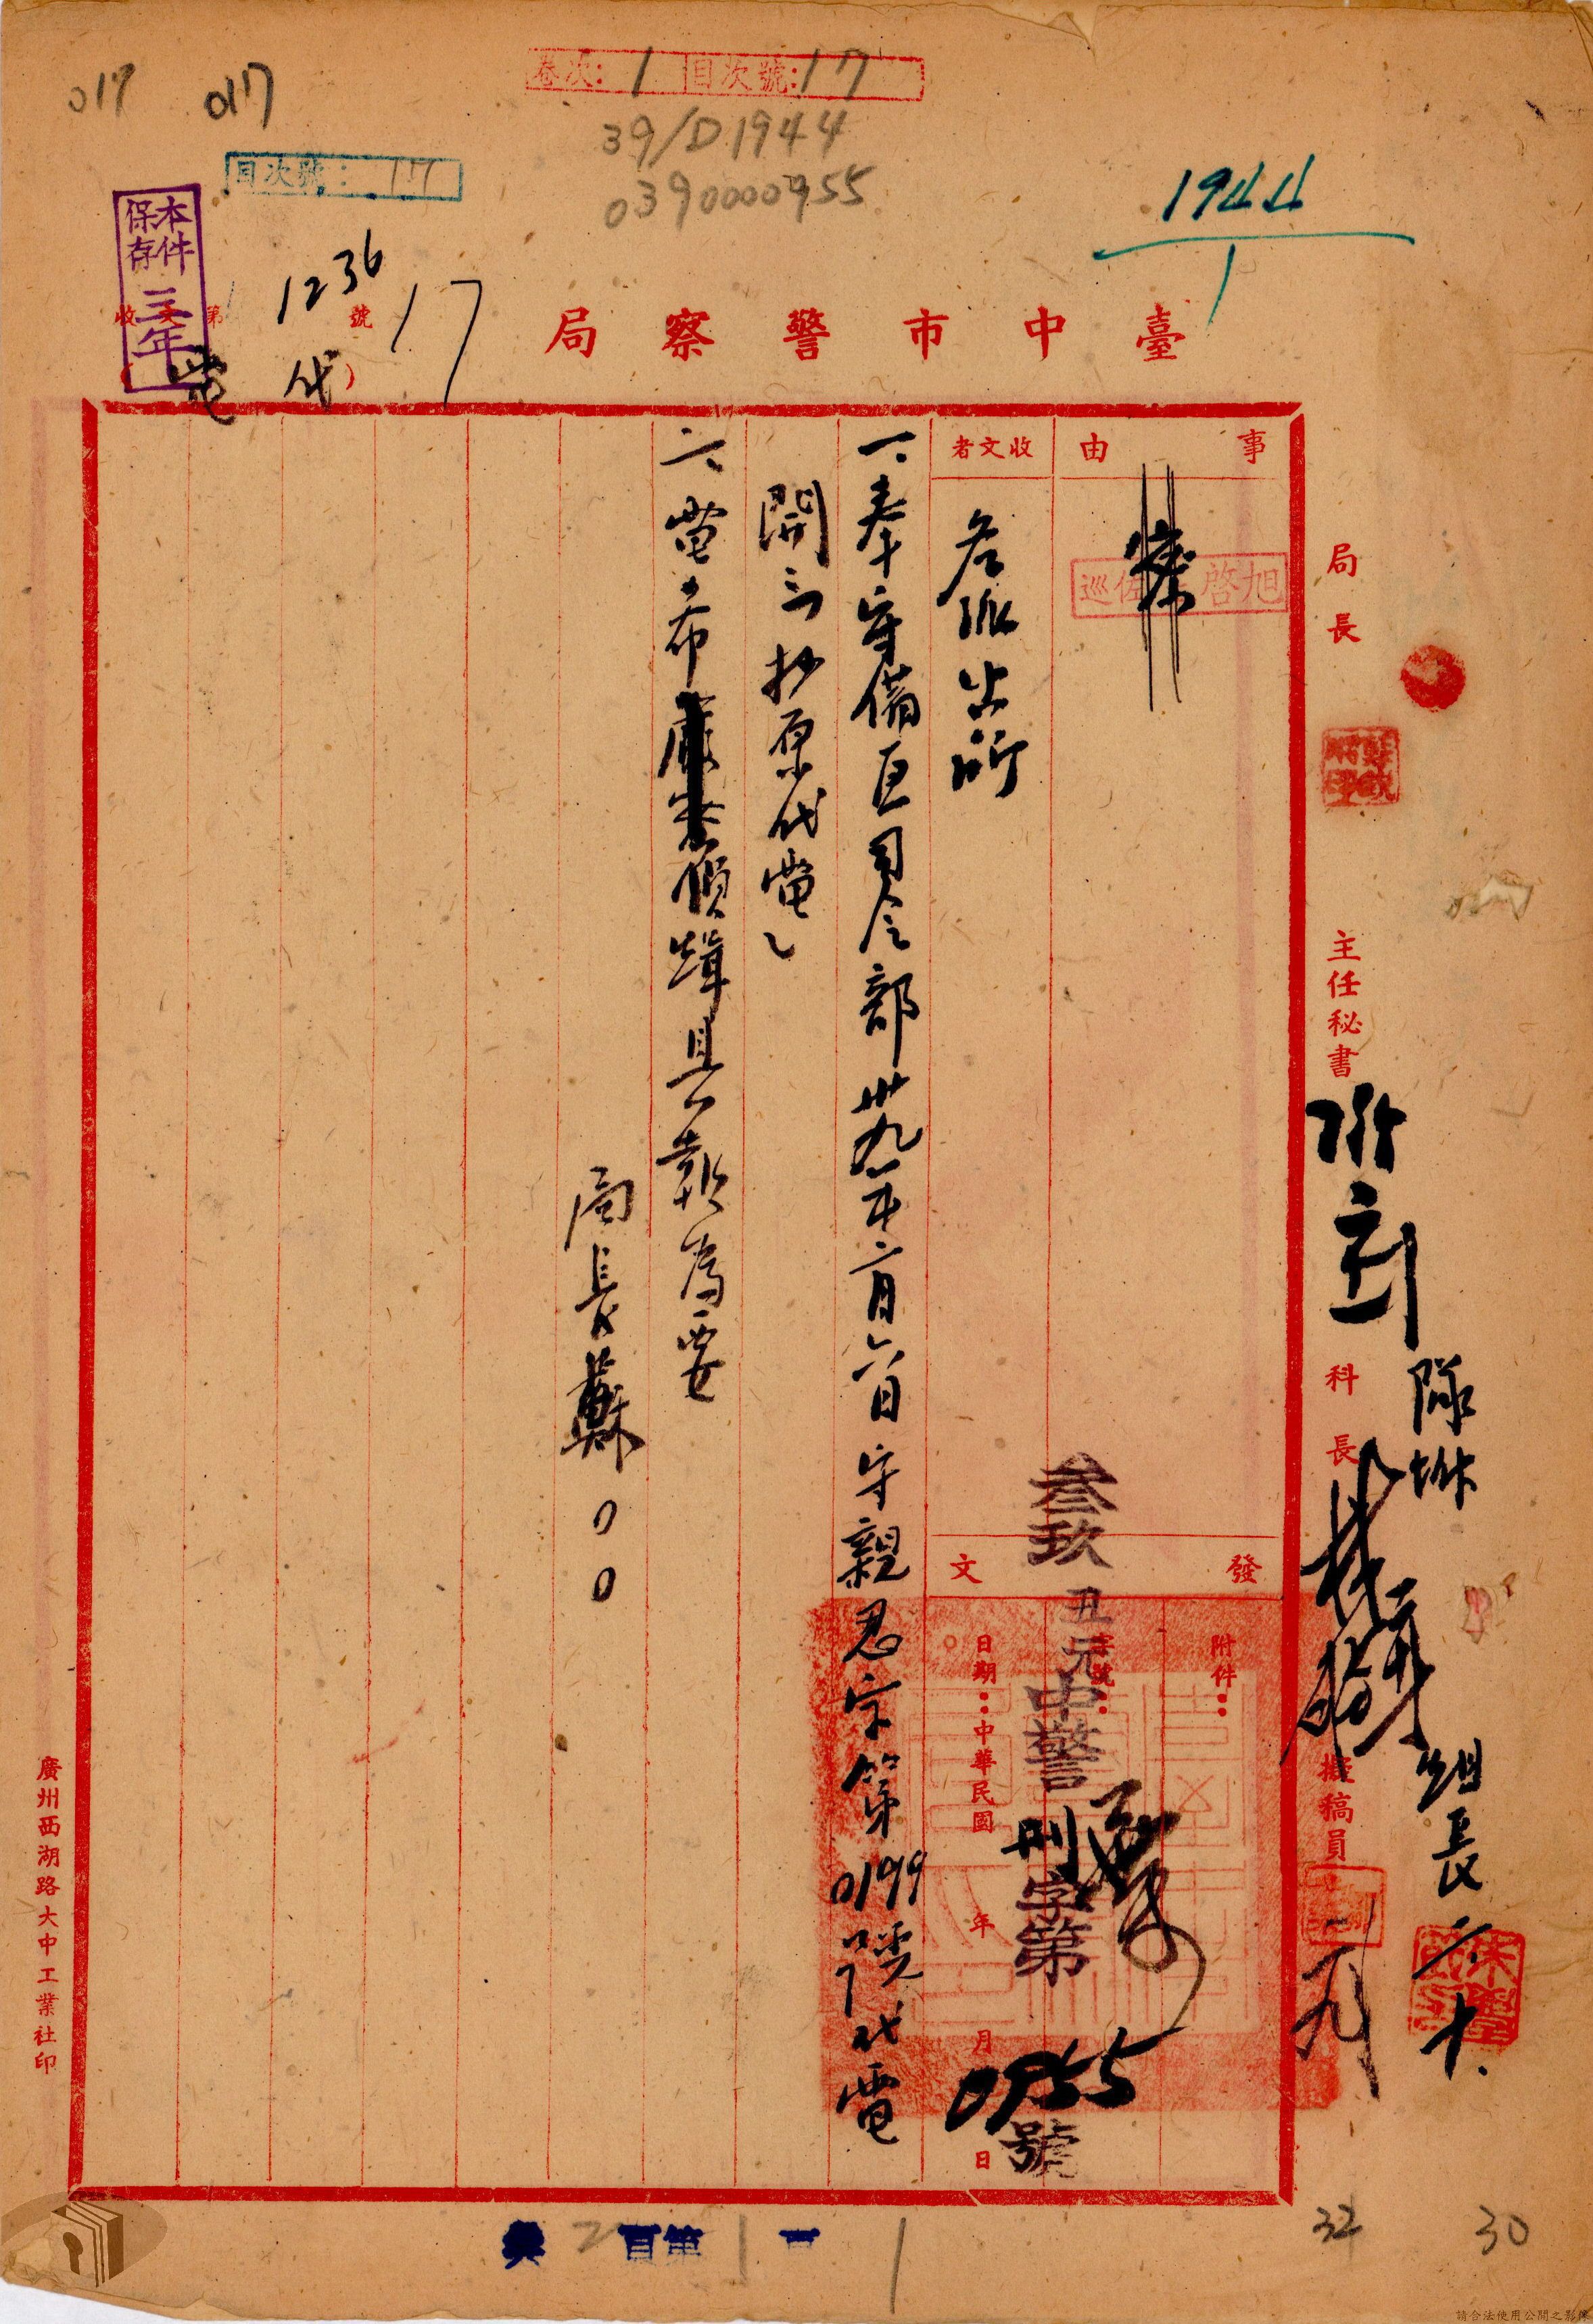 卷次：1 目次號：17
39/D1944
0390000955
017
017
目次號：17
本件保存三年
1944
1
收文第1236號
電代
17
臺中市警察局
事由
旭啓
佐巡
收文者
各派出所
一、奉守備區司令部卅九年二月六日守親忍字第0199號代電
開：「抄原代電」
二、電希嚴密偵緝具報為要
局長蘇00
發文
附件：
字號：
叁玖丑元中警刑字第0955號
日期：中華民國 年 月 日
局長
主任秘書
科長
擬稿員
組長
二、十、
廣州西湖路大中工業社印
共2頁第1頁
1
32
30
請合法使用公開之影像